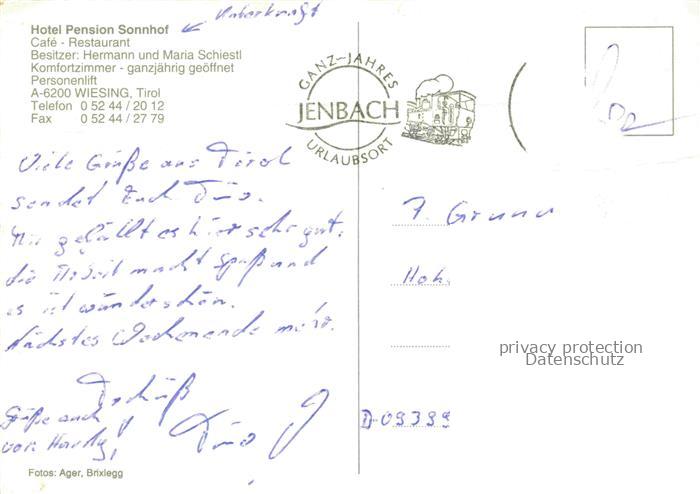 Unterkunft
Hotel Pension Sonnhof
Café - Restaurant
Besitzer: Hermann und Maria Schiestl
Komfortzimmer - ganzjährig geöffnet
Personenlift
A-6200 WIESING, Tirol
Telefon 0 52 44 / 20 12
Fax 0 52 44 / 27 79
GANZ-JAHRES
JENBACH
URLAUBSORT
Viele Grüße aus Tirol
sendet Euch
Mir gefällt es hier sehr gut,
die Arbeit macht Spaß und
es ist wunderschön.
Nächstes Wochenende mehr.
Tschüß
Grüße auch
von
Hoh.
D-09399
privacy protection
Datenschutz
Fotos: Ager, Brixlegg